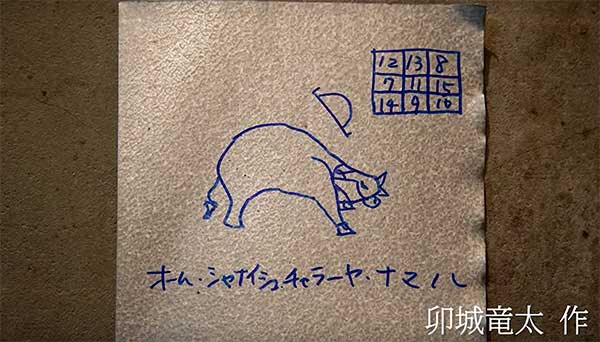 12 13 8
7 11 15
14 9 10
オーム・シャナイシュチャラーヤ・ナマハ
卯城竜太 作